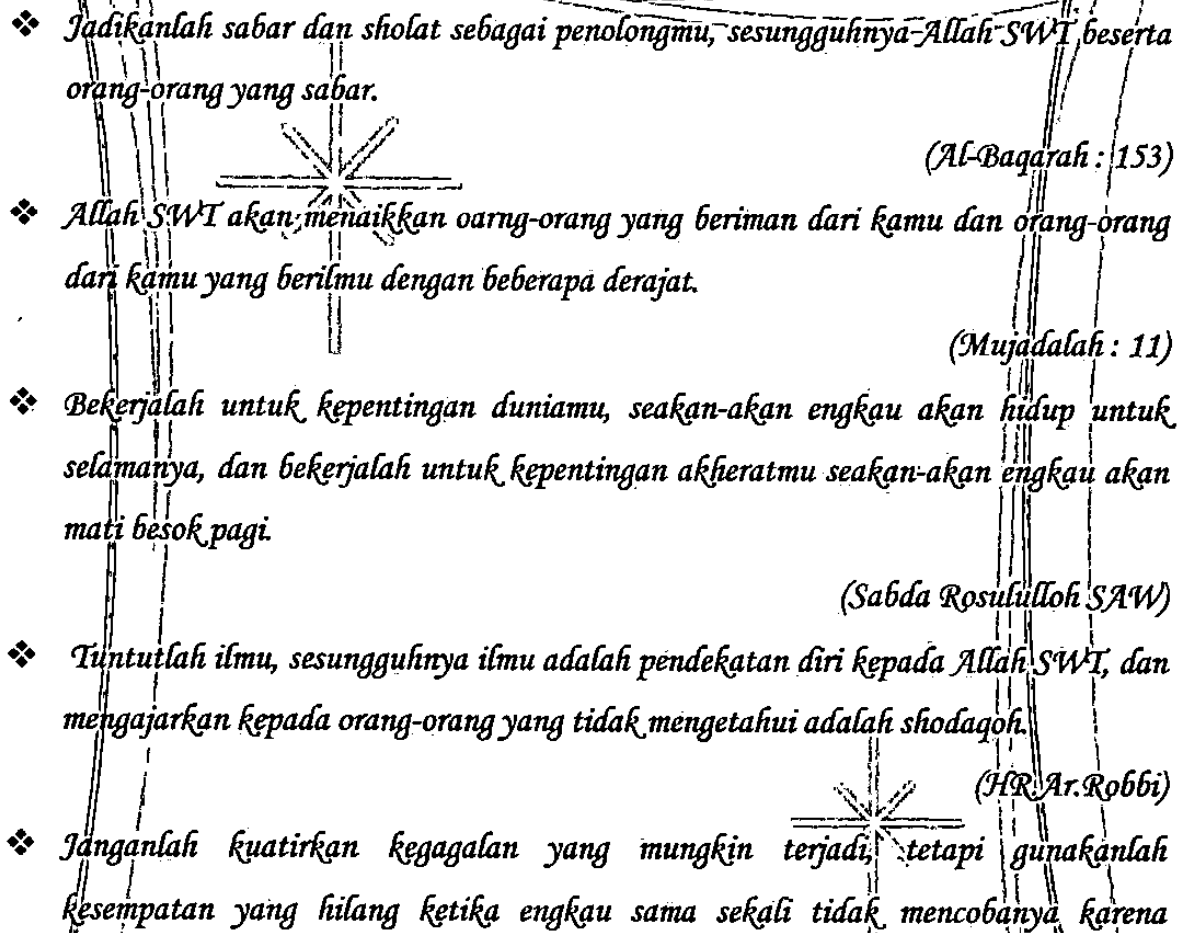 ❖ Jadikanlah sabar dan sholat sebagai penolongmu, sesungguhnya Allah SWT beserta
orang-orang yang sabar.
(Al-Baqarah : 153)
❖ Allah SWT akan menaikkan oarng-orang yang beriman dari kamu dan orang-orang
dari kamu yang berilmu dengan beberapa derajat.
(Mujadalah : 11)
❖ Bekerjalah untuk kepentingan duniamu, seakan-akan engkau akan hidup untuk
selamanya, dan bekerjalah untuk kepentingan akheratmu seakan-akan engkau akan
mati besok pagi.
(Sabda Rosululloh SAW)
❖ Tuntutlah ilmu, sesungguhnya ilmu adalah pendekatan diri kepada Allah SWT, dan
mengajarkan kepada orang-orang yang tidak mengetahui adalah shodaqoh.
(HR.Ar.Robbi)
❖ Janganlah kuatirkan kegagalan yang mungkin terjadi, tetapi gunakanlah
kesempatan yang hilang ketika engkau sama sekali tidak mencobanya karena